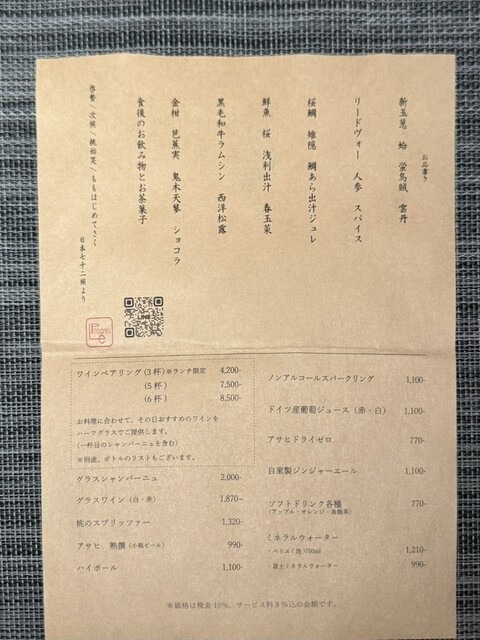 お品書き
新玉葱 蛤 蛍烏賊 雲丹
リードヴォー 人参 スパイス
桜鯛 雄隠 鯛あら出汁ジュレ
鮮魚 桜 浅利出汁 春玉菜
黒毛和牛ラムシン 西洋松露
金柑 芭蕉実 鬼木天蓼 ショコラ
食後のお飲み物とお茶菓子
啓蟄／次候／桃始笑／ももはじめてさく
日本七十二候より
LINE
Progrès
ワインペアリング（3杯）※ランチ限定 4,200-
（5杯） 7,500-
（6杯） 8,500-
お料理に合わせて、その日おすすめのワインを
ハーフグラスでご提供します。
（一杯目のシャンパーニュを含む）
※別途、ボトルのリストもございます。
グラスシャンパーニュ 2,000-
グラスワイン（白・赤） 1,870~
桃のスプリッツァー 1,320-
アサヒ 熟撰（小瓶ビール） 990-
ハイボール 1,100-
ノンアルコールスパークリング 1,100-
ドイツ産葡萄ジュース（赤・白） 1,100-
アサヒドライゼロ 770-
自家製ジンジャーエール 1,100-
ソフトドリンク各種 770-
（アップル・オレンジ・烏龍茶）
ミネラルウォーター
・ペリエ（泡）750ml 1,210-
・富士ミネラルウォーター 990-
※価格は税金10%、サービス料8%込の金額です。